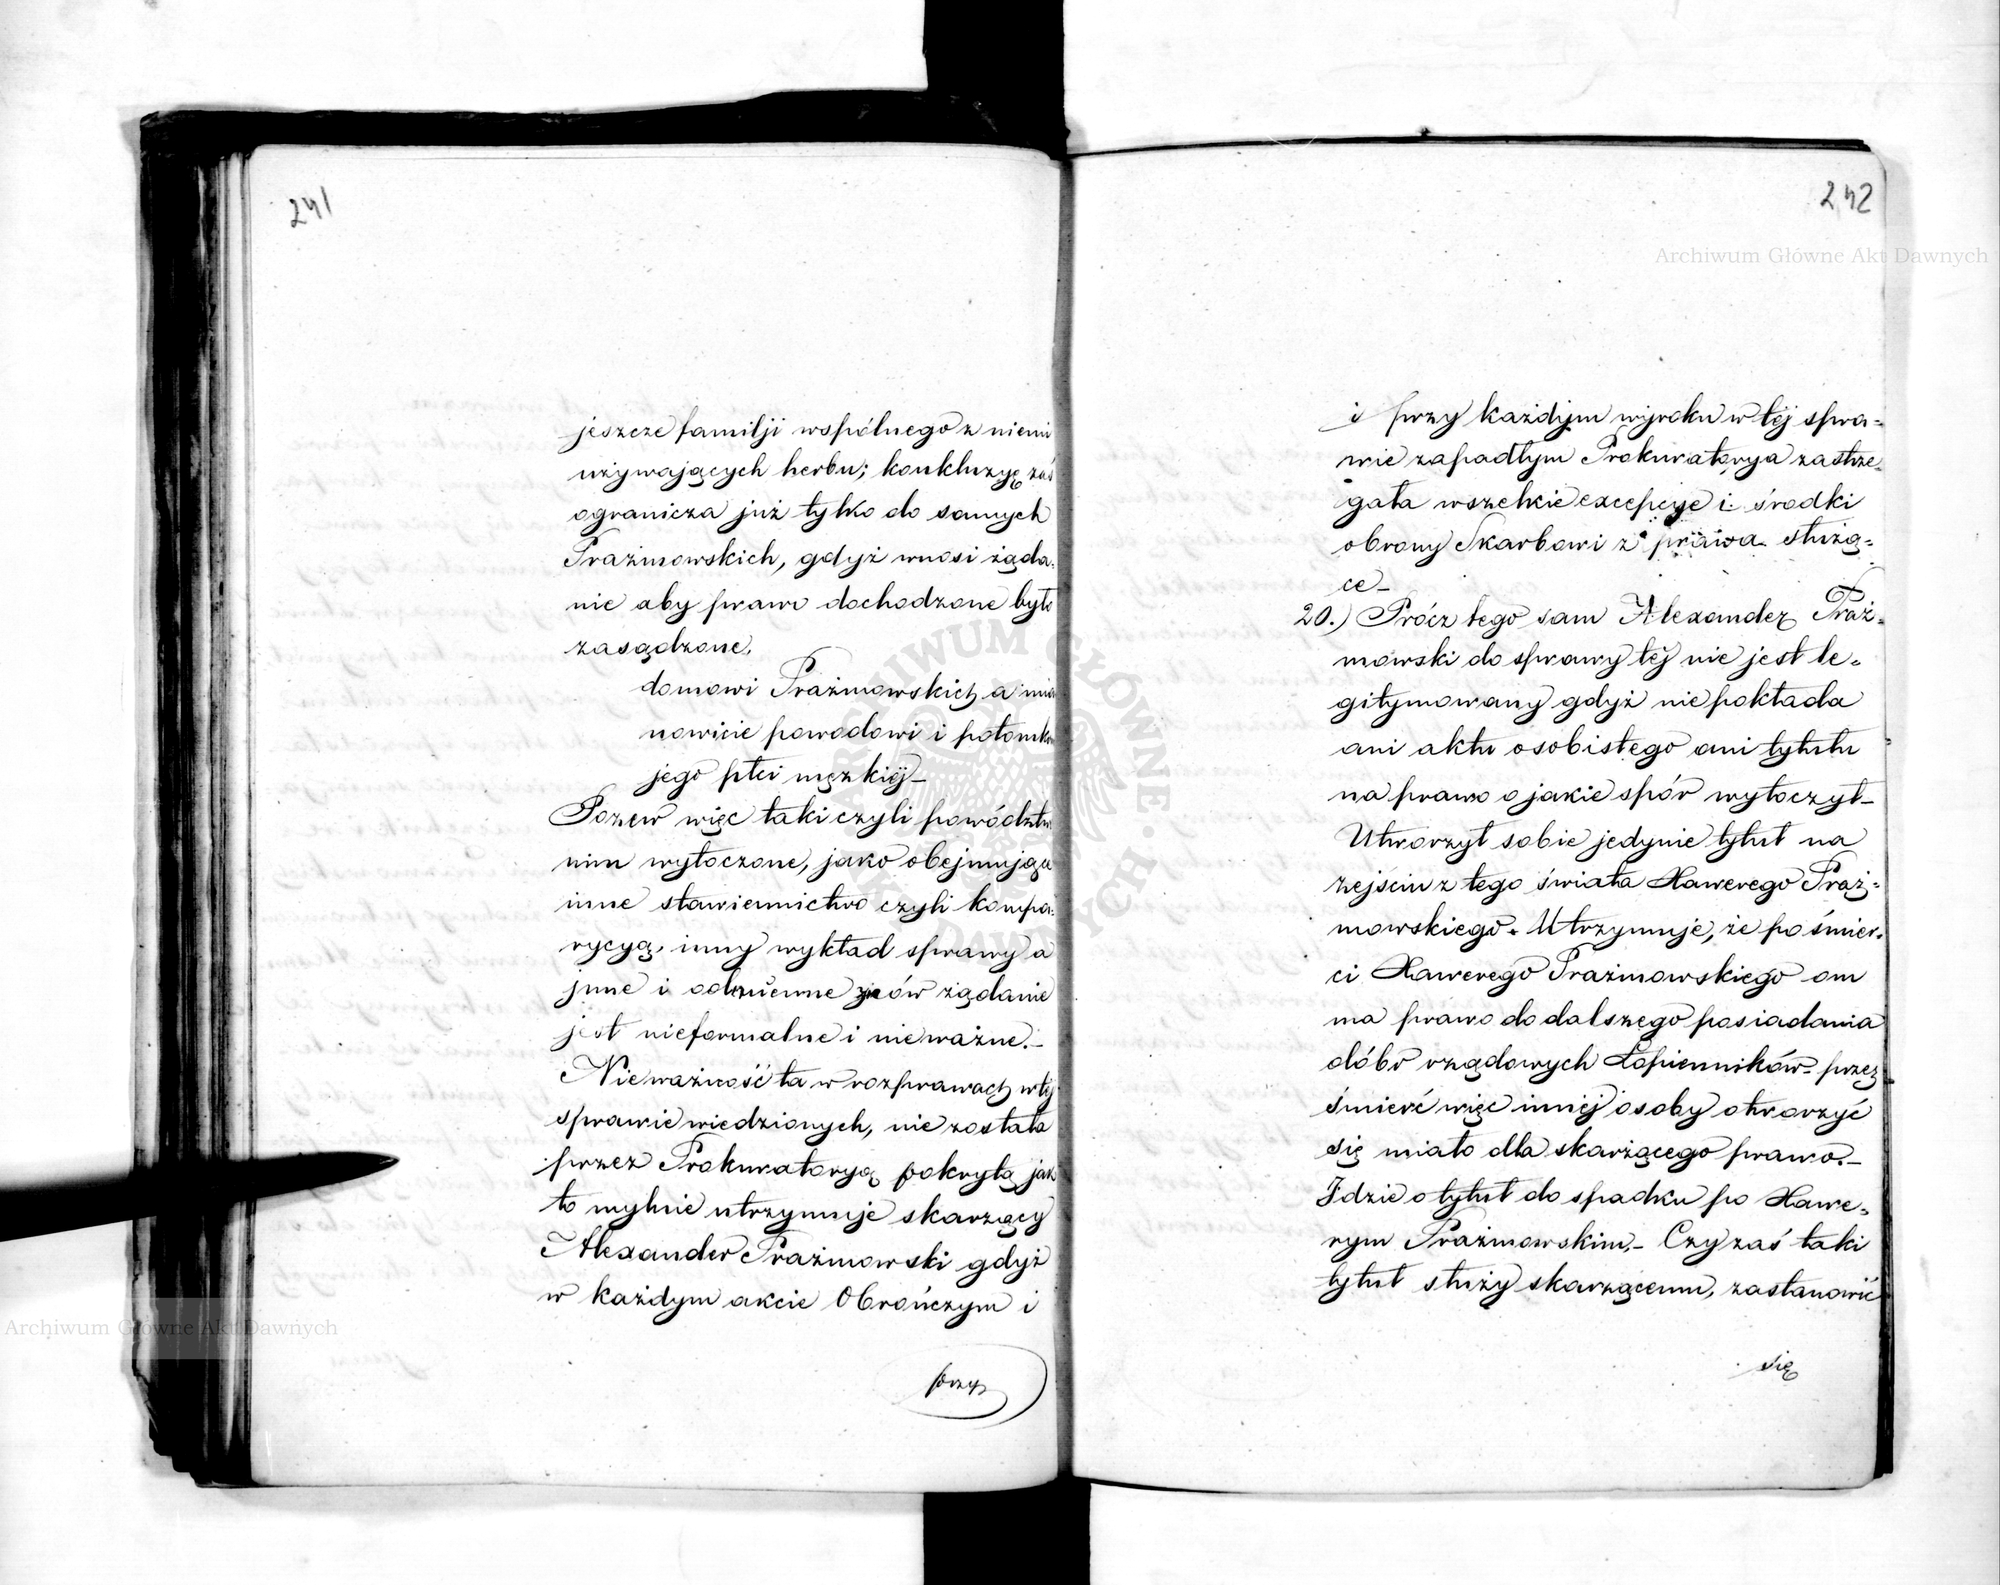 241
jeszcze familji wspólnego z niemi
używających herbu; konkluzyę zaś
ogranicza już tylko do samych
Prażmowskich, gdyż wnosi żąda=
nie aby prawo dochodzone było
zasądzone.
domowi Prażmowskich a mia
nowicie powodowi i potomk
jego płci męzkiéj_
Pozew więc taki czyli powództw
nim wytoczone, jako obejmując
inne stawiennictwo czyli kompa=
rycyą, inny wykład sprawy a
jnne i odmienne znów żądanie
jest nieformalne i nieważne._
Nieważność ta w rozprawach w téj
sprawie wiedzionych, nie została
przez Prokuratoryą pokrytą jak
to mylnie utrzymuje skarzący
Alexander Prażmowski gdyż
w każdym akcie Obrończym i
przy
242
i przy każdym wyroku w téj spra=
wie zapadłym Prokuratorya zastrze=
gała wszelkie excepcye i środki
obrony Skarbowi z prawa służą=
ce_
20.) Prócz tego sam Alexander Praż=
mowski do sprawy téj nie jest le=
gitymowany gdyż nie pokłada
ani aktu osobistego ani tytułu
na prawo o jakie spór wytoczył_
Utworzył sobie jedynie tytuł na
zejściu z tego świata Xawerego Praż=
mowskiego. Utrzymuje, że po śmier=
ci Xawerego Prażmowskiego on
ma prawo do dalszego posiadania
dóbr rządowych Łopienników_ przez
śmierć więc innéj osoby otworzyć
się miało dla skarżącego prawo._
Idzie o tytuł do spadku po Xawe=
rym Prażmowskim._ Czy zaś taki
tytuł służy skarzącemu, zastanowić
się
Archiwum Główne Akt Dawnych
Archiwum Główne Akt Dawnych
ARCHIWUM GŁÓWNE AKT DAWNYCH